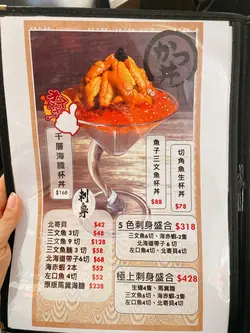 かつ丼
千層海膽杯丼
$168
魚子三文魚杯丼
$88
切角魚生杯丼
$78
刺身
北寄貝 $42
三文魚 3切 $48
三文魚 9 切 $128
三文魚腩 3 切 $58
北海道帶子6切 $68
海赤蝦 2本 $52
左口魚 4切 $52
原版馬糞海膽 $238
5 色刺身盛合 $318
三文魚6切、海赤蝦-2隻
北海道帶子6切
左口魚4切、北寄貝4切
極上刺身盛合 $428
生蠔4隻、馬糞海膽
三文魚6切、海赤蝦-2隻
左口魚4切、北寄貝4切